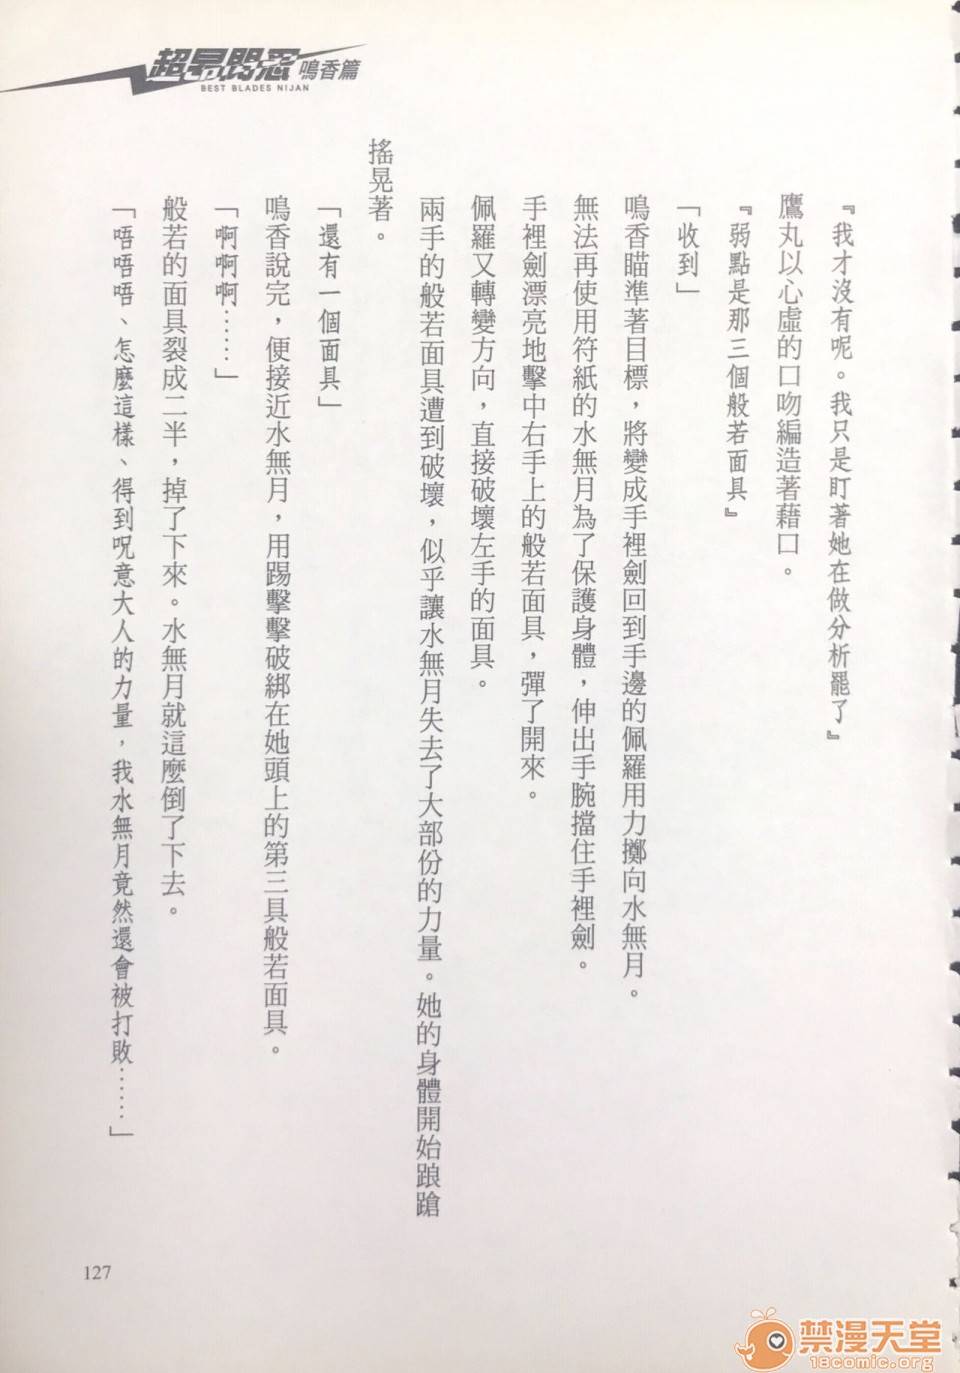 超昂閃忍 鳴香篇
BEST BLADES NIJAN
『我才沒有呢。我只是盯著她在做分析罷了』
鷹丸以心虛的口吻編造著藉口。
『弱點是那三個般若面具』
「收到」
鳴香瞄準著目標，將變成手裡劍回到手邊的佩羅用力擲向水無月。
無法再使用符紙的水無月為了保護身體，伸出手腕擋住手裡劍。
手裡劍漂亮地擊中右手上的般若面具，彈了開來。
佩羅又轉變方向，直接破壞左手的面具。
兩手的般若面具遭到破壞，似乎讓水無月失去了大部份的力量。她的身體開始踉蹌
搖晃著。
「還有一個面具」
鳴香說完，便接近水無月，用踢擊擊破綁在她頭上的第三具般若面具。
「啊啊啊……」
般若的面具裂成二半，掉了下來。水無月就這麼倒了下去。
「唔唔唔、怎麼這樣、得到呪意大人的力量，我水無月竟然還會被打敗……」
127
禁漫天堂
18comic.org